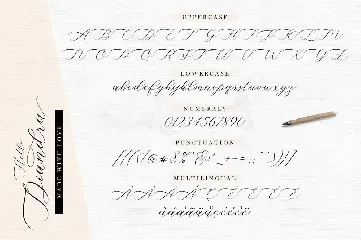 UPPERCASE
A B C D E F G H I J K L M
N O P Q R S T U V W X Y Z
LOWERCASE
abcdefghijklmnopqrstuvwxyz
NUMERALS
0123456789
PUNCTUATION
MULTILINGUAL
Hello
Diandra
MADE WITH LOVE